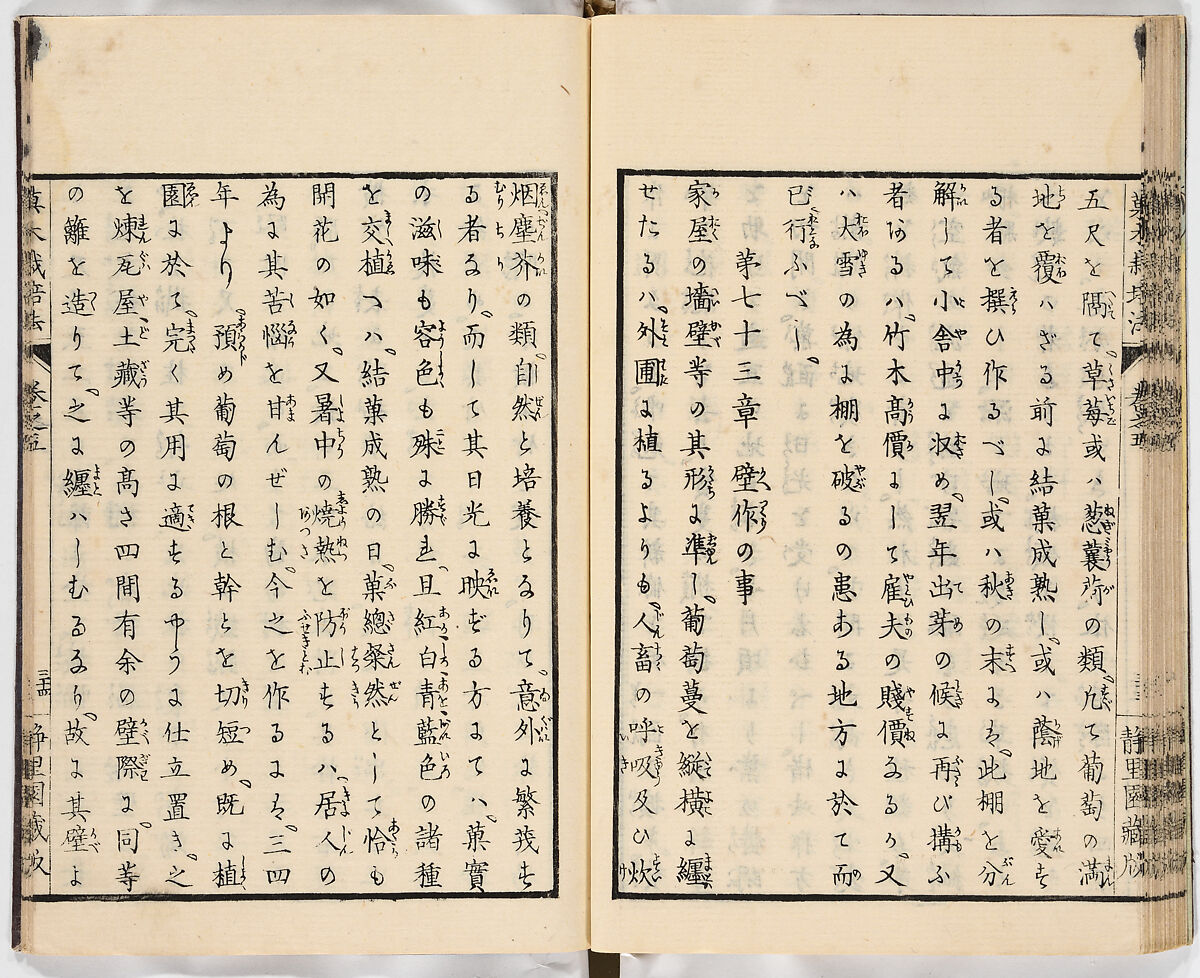 菓木栽培法
巻之五
三十三
静里園藏版
五尺を隔て、草莓或ハ葱蘘荷の類、凡て葡萄の満
地を覆ハざる前に結菓成熟し、或ハ蔭地を愛す
る者を撰ひ作るべし、或ハ秋の末にハ、此棚を分
解して小舎中に収め、翌年出芽の候に再び構ふ
者あるハ、竹木髙價にして雇夫の賤價なるか、又
ハ大雪の為に棚を破るの患ある地方に於て而
已行ふべし、
第七十三章 壁作の事
家屋の墻壁等の其形に準し、葡萄蔓を縦横に纏
せたるハ、外圃に植るよりも、人畜の呼吸及ひ炊
烟塵芥の類、自然と培養となりて、意外に繁茂す
る者なり、而して其日光に映ずる方にてハ、菓實
の滋味も容色も殊に勝れ、且紅白青藍色の諸種
を交植へハ、結菓成熟の日、菓總粲然として恰も
開花の如く、又暑中の焼熱を防止するハ、居人の
為に其苦惱を甘んぜしむ、今之を作るにハ、三四
年より、預め葡萄の根と幹とを切短め、既に植
園に於て、完く其用に適するやうに仕立置き、之
を煉瓦屋土藏等の髙さ四間有余の壁際に、同等
の籬を造りて、之に纏ハしむるなり、故に其壁よ
菓木栽培法
巻之五
三十四
静里園藏版